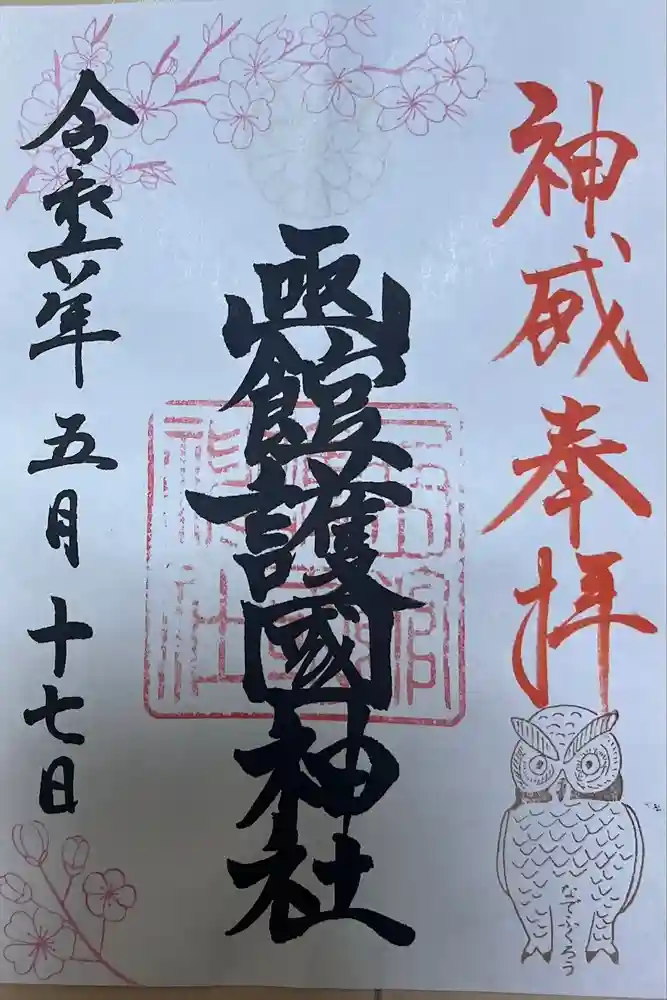 神威奉拝
凾館護國神社
令和六年五月十七日
なでふくろう